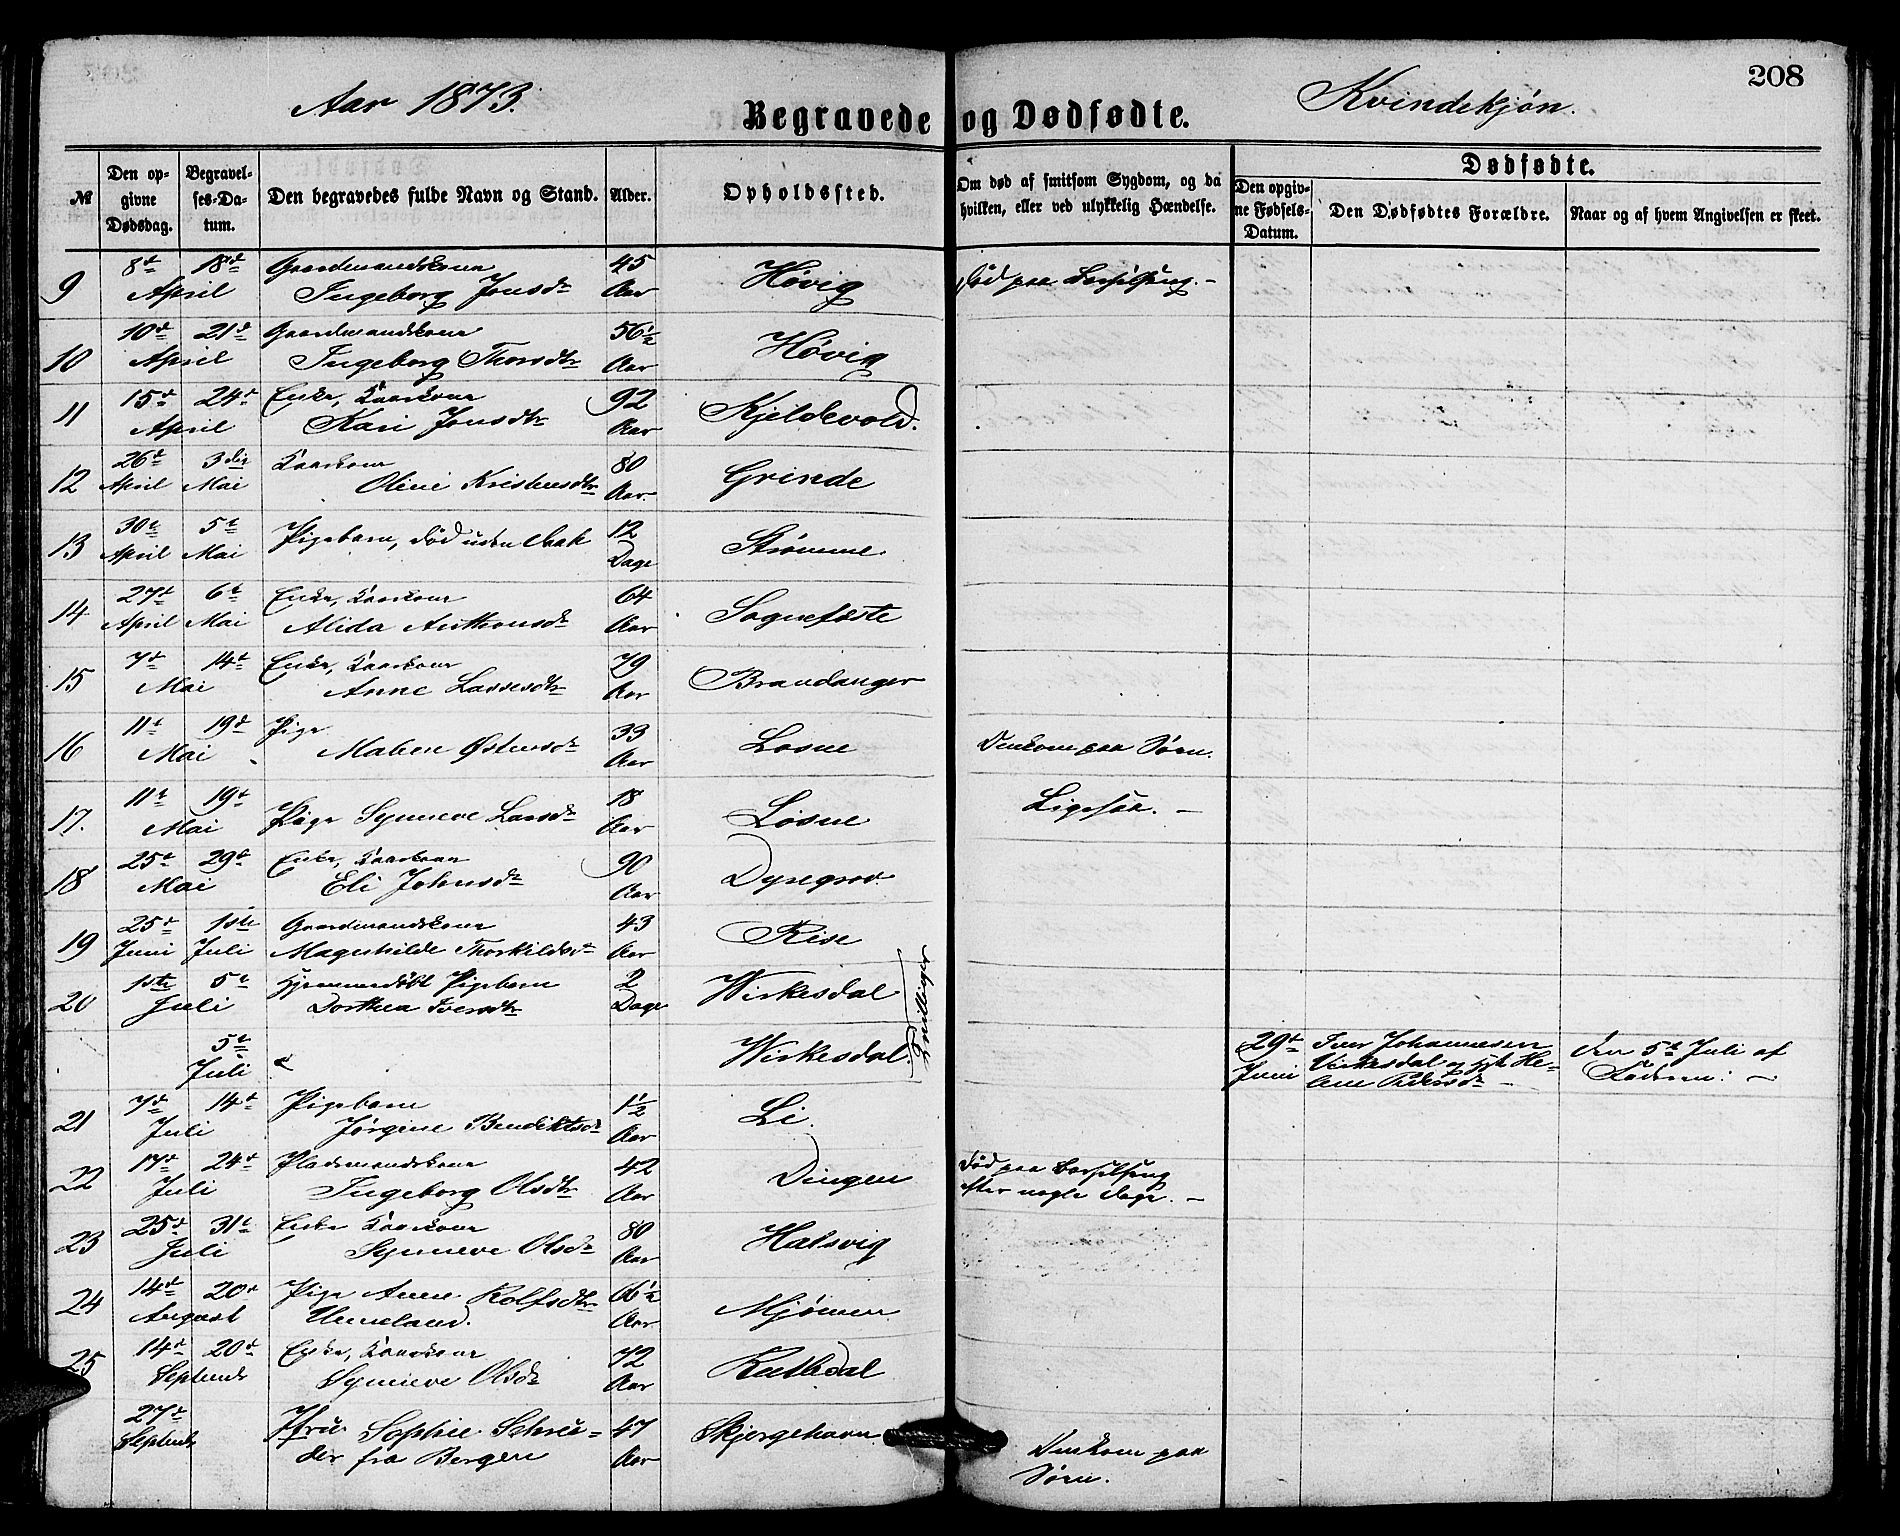 208
Aar 1873.
Begravede og Dødfødte.
Kvindekjøn.
№
Den opgivne Dødsdag.
Begravelses-Datum.
Den begravedes fulde Navn og Stand.
Alder.
Opholdssted.
Om død af smitsom Sygdom, og da hvilken, eller ved ulykkelig Hændelse.
Dødfødte.
Den opgivne Fødsels-Datum.
Den Dødfødtes Forældre.
Naar og af hvem Angivelsen er skeet.
9 8de 18de April Gaardmandskone Ingeborg Jonsdtr 45 Aar Høvig Død paa Barselseng. –
10 10de 21de April Gaardmandskone Ingeborg Thorsdtr 56½ Aar Høvig
11 15de 24de April Enke, Kaarkone Kari Jonsdtr 92 Aar Kjeldevold.
12 26de April 3die Mai Kaarkone Oline Kristensdtr 80 Aar Grinde
13 30te April 5te Mai Pigebarn, død uden Daab 12 Dage Strømme
14 27de April 6te Mai Enke, Kaarkone Alida Anthonsdr 64 Aar Sognefæste
15 7de 14de Mai Enke, Kaarkone Anne Lassesdtr 79 Aar Brandanger
16 11te 19de Mai Pige Maben Østensdr 33 Aar Losne Omkom paa Søen.
17. 11te 19de Mai Pige Synneve Larsdr 18 Aar Losne Ligesaa. –
18 25de 29de Mai Enke, Kaarkone Eli Johnsdr 90 Aar Dyregrov
19 25de Juni 1ste Juli Gaardmandskone Magnhilde Thorkildsdr 43 Aar Rise
20 1ste 5te Juli Hjemmedøbt Pigebarn Dorthea Iversdtr 2 Dage Wirkesdal
Tvillinger
5te Juli Wirkesdal 29de Juni Iver Johannesen Virkesdal og H. Helene Pedersdr – den 5te Juli af Faderen. –
21 7de 14de Juli Pigebarn Jørgine Bendiktsdr 1½ Aar Li.
22 17de 24de Juli Pladsmandskone Ingeborg Olsdtr 42 Aar Dingen Død paa Barselseng efter nogle Dage. –
23 25de 31te Juli Enke Kaarkone Synneve Olsdr 80 Aar Halsvig
24 14de 20de August Pige Anne Rolfsdtr Unneland. 66½ Aar Mjømen
25 14de 20de Septembr Enke, Kaarkone Synneve Olsdr 72 Aar Kathdal
27de Septembr Fru Sophie Schreuder fra Bergen 47 Aar Skjergehavn Omkom paa Søen.